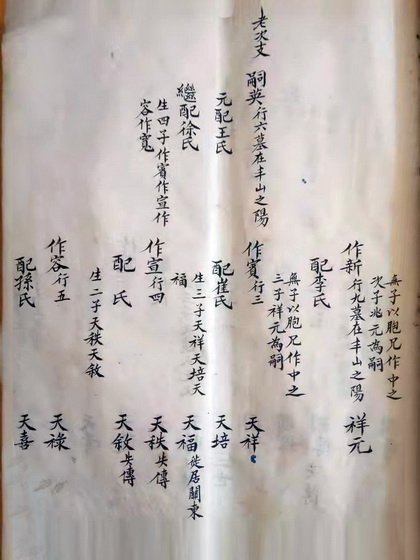 無子以胞兄作中之
次子兆元為嗣
作新行九墓在丰山之陽
祥元
配李氏
無子以胞兄作中之
三子祥元為嗣
老次支
嗣英行六墓在丰山之陽
作賓行三
天祥
元配王氏
配崔氏
天培
生三子天祥天培天
福
繼配徐氏
天福徙居關東
生四子作賓作宣作
容作寬
作宣行四
天秩失傳
配 氏
天敘失傳
生二子天秩天敘
作容行五
天祿
配孫氏
天喜